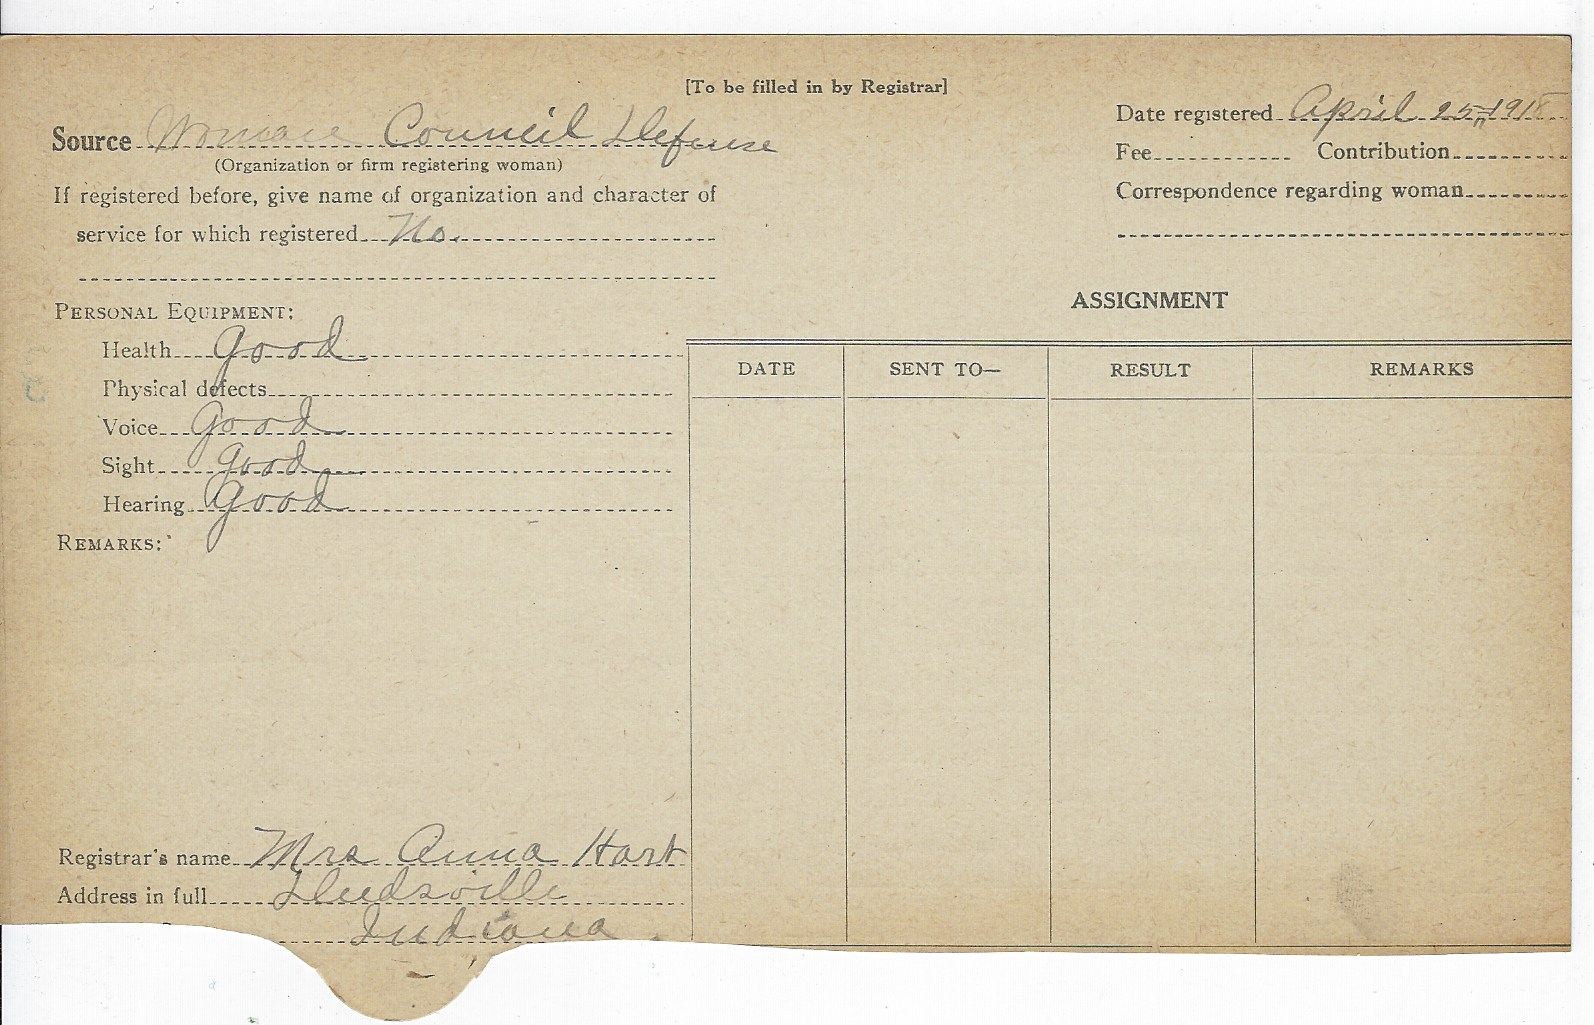 [To be filled in by Registrar]
Source Womans Council Defense
(Organization or firm registering woman)
If registered before, give name of organization and character of
service for which registered No.
Date registered April 25, 1918
Fee Contribution
Correspondence regarding woman
PERSONAL EQUIPMENT:
Health good
Physical defects
Voice good
Sight good
Hearing good
REMARKS:
ASSIGNMENT
DATE SENT TO— RESULT REMARKS
Registrar's name Mrs Anna Hart
Address in full
Indiana